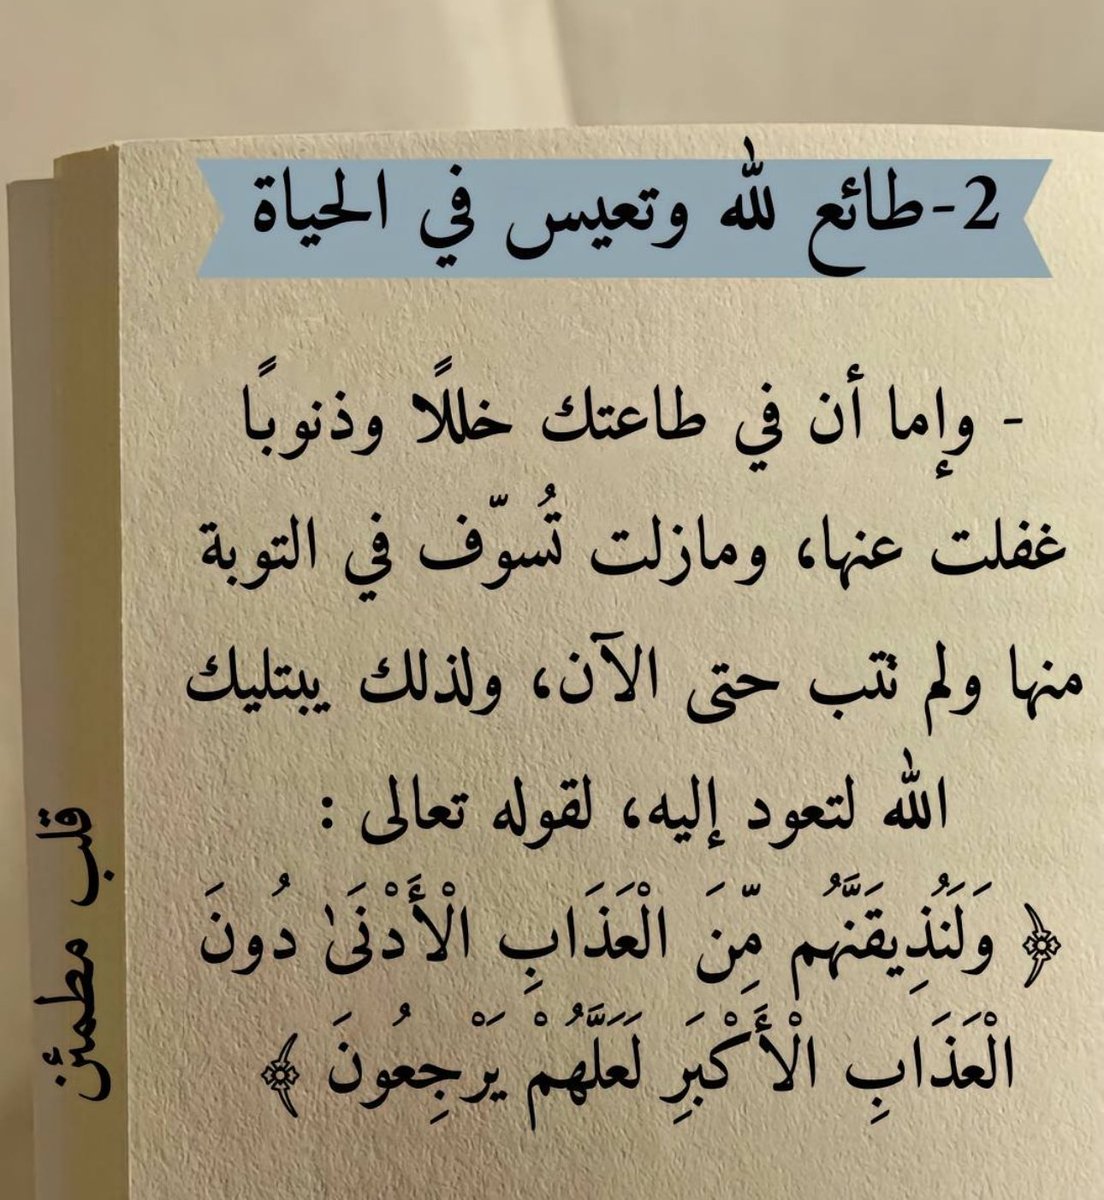 2-طائع لله وتعيس في الحياة
- وإما أن في طاعتك خللًا وذنوبًا
غفلت عنها، ومازلت تُسوّف في التوبة
منها ولم تتب حتى الآن، ولذلك يبتليك
الله لتعود إليه، لقوله تعالى :
﴿ وَلَنُذِيقَنَّهُم مِّنَ الْعَذَابِ الْأَدْنَىٰ دُونَ
الْعَذَابِ الْأَكْبَرِ لَعَلَّهُمْ يَرْجِعُونَ ﴾
قلب مطمئن